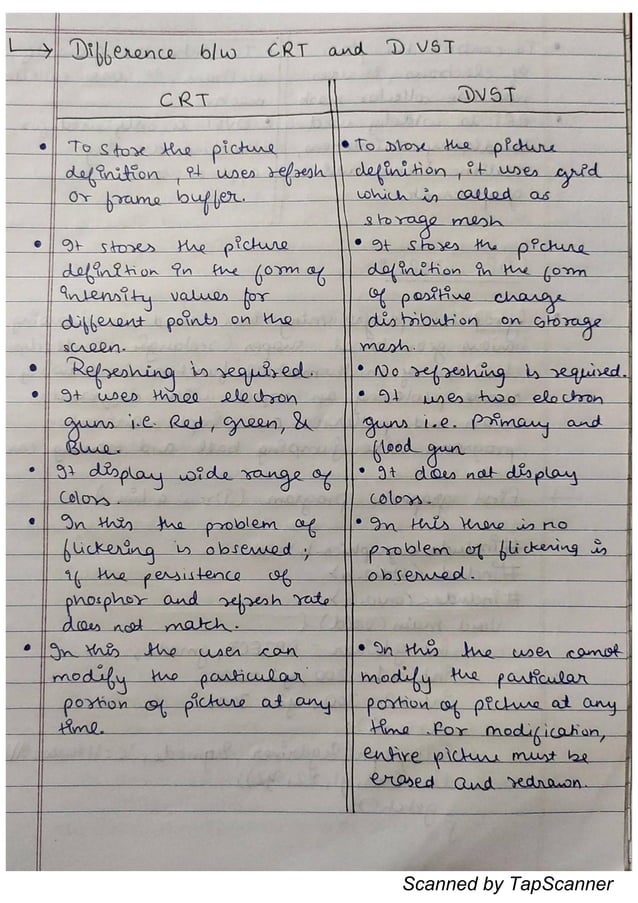 Difference b/w CRT and DVST
CRT
• To store the picture
definition, it uses refresh
or frame buffer.
• It stores the picture
definition in the form of
intensity values for
different points on the
screen.
• Refreshing is required.
• It uses three electron
guns i.e. Red, green, &
Blue.
• It display wide range of
colors.
• In this the problem of
flickering is observed;
if the persistence of
phosphor and refresh rate
does not match.
• In this the user can
modify the particular
portion of picture at any
time.
DVST
• To store the picture
definition, it uses grid
which is called as
storage mesh
• It stores the picture
definition in the form
of positive charge
distribution on storage
mesh.
• No refreshing is required.
• It uses two electron
guns i.e. Primary and
flood gun
• It does not display
colors.
• In this there is no
problem of flickering is
observed.
• In this the user cannot
modify the particular
portion of picture at any
time. For modification,
entire picture must be
erased and redrawn.
Scanned by TapScanner